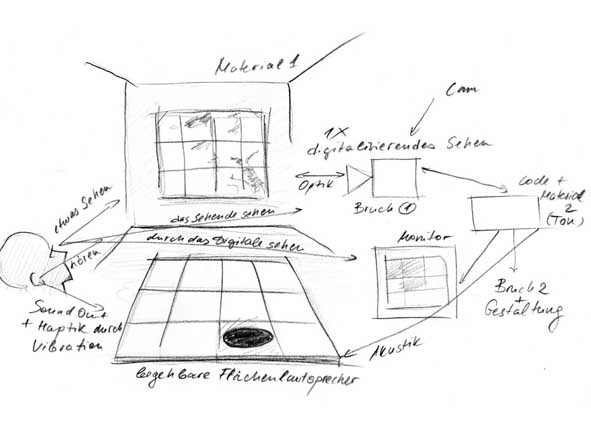 Material 1
Cam
1x
digitalisierendes Sehen
Optik
Bruch 1
Code +
Material
2
(Ton)
etwas Sehen
hören
das Sehende sehen
durch das Digitale sehen
Monitor
Bruch 2
+
Gestaltung
Sound Out
+ Haptik durch
Vibration
Akustik
begehbare Flächenlautsprecher